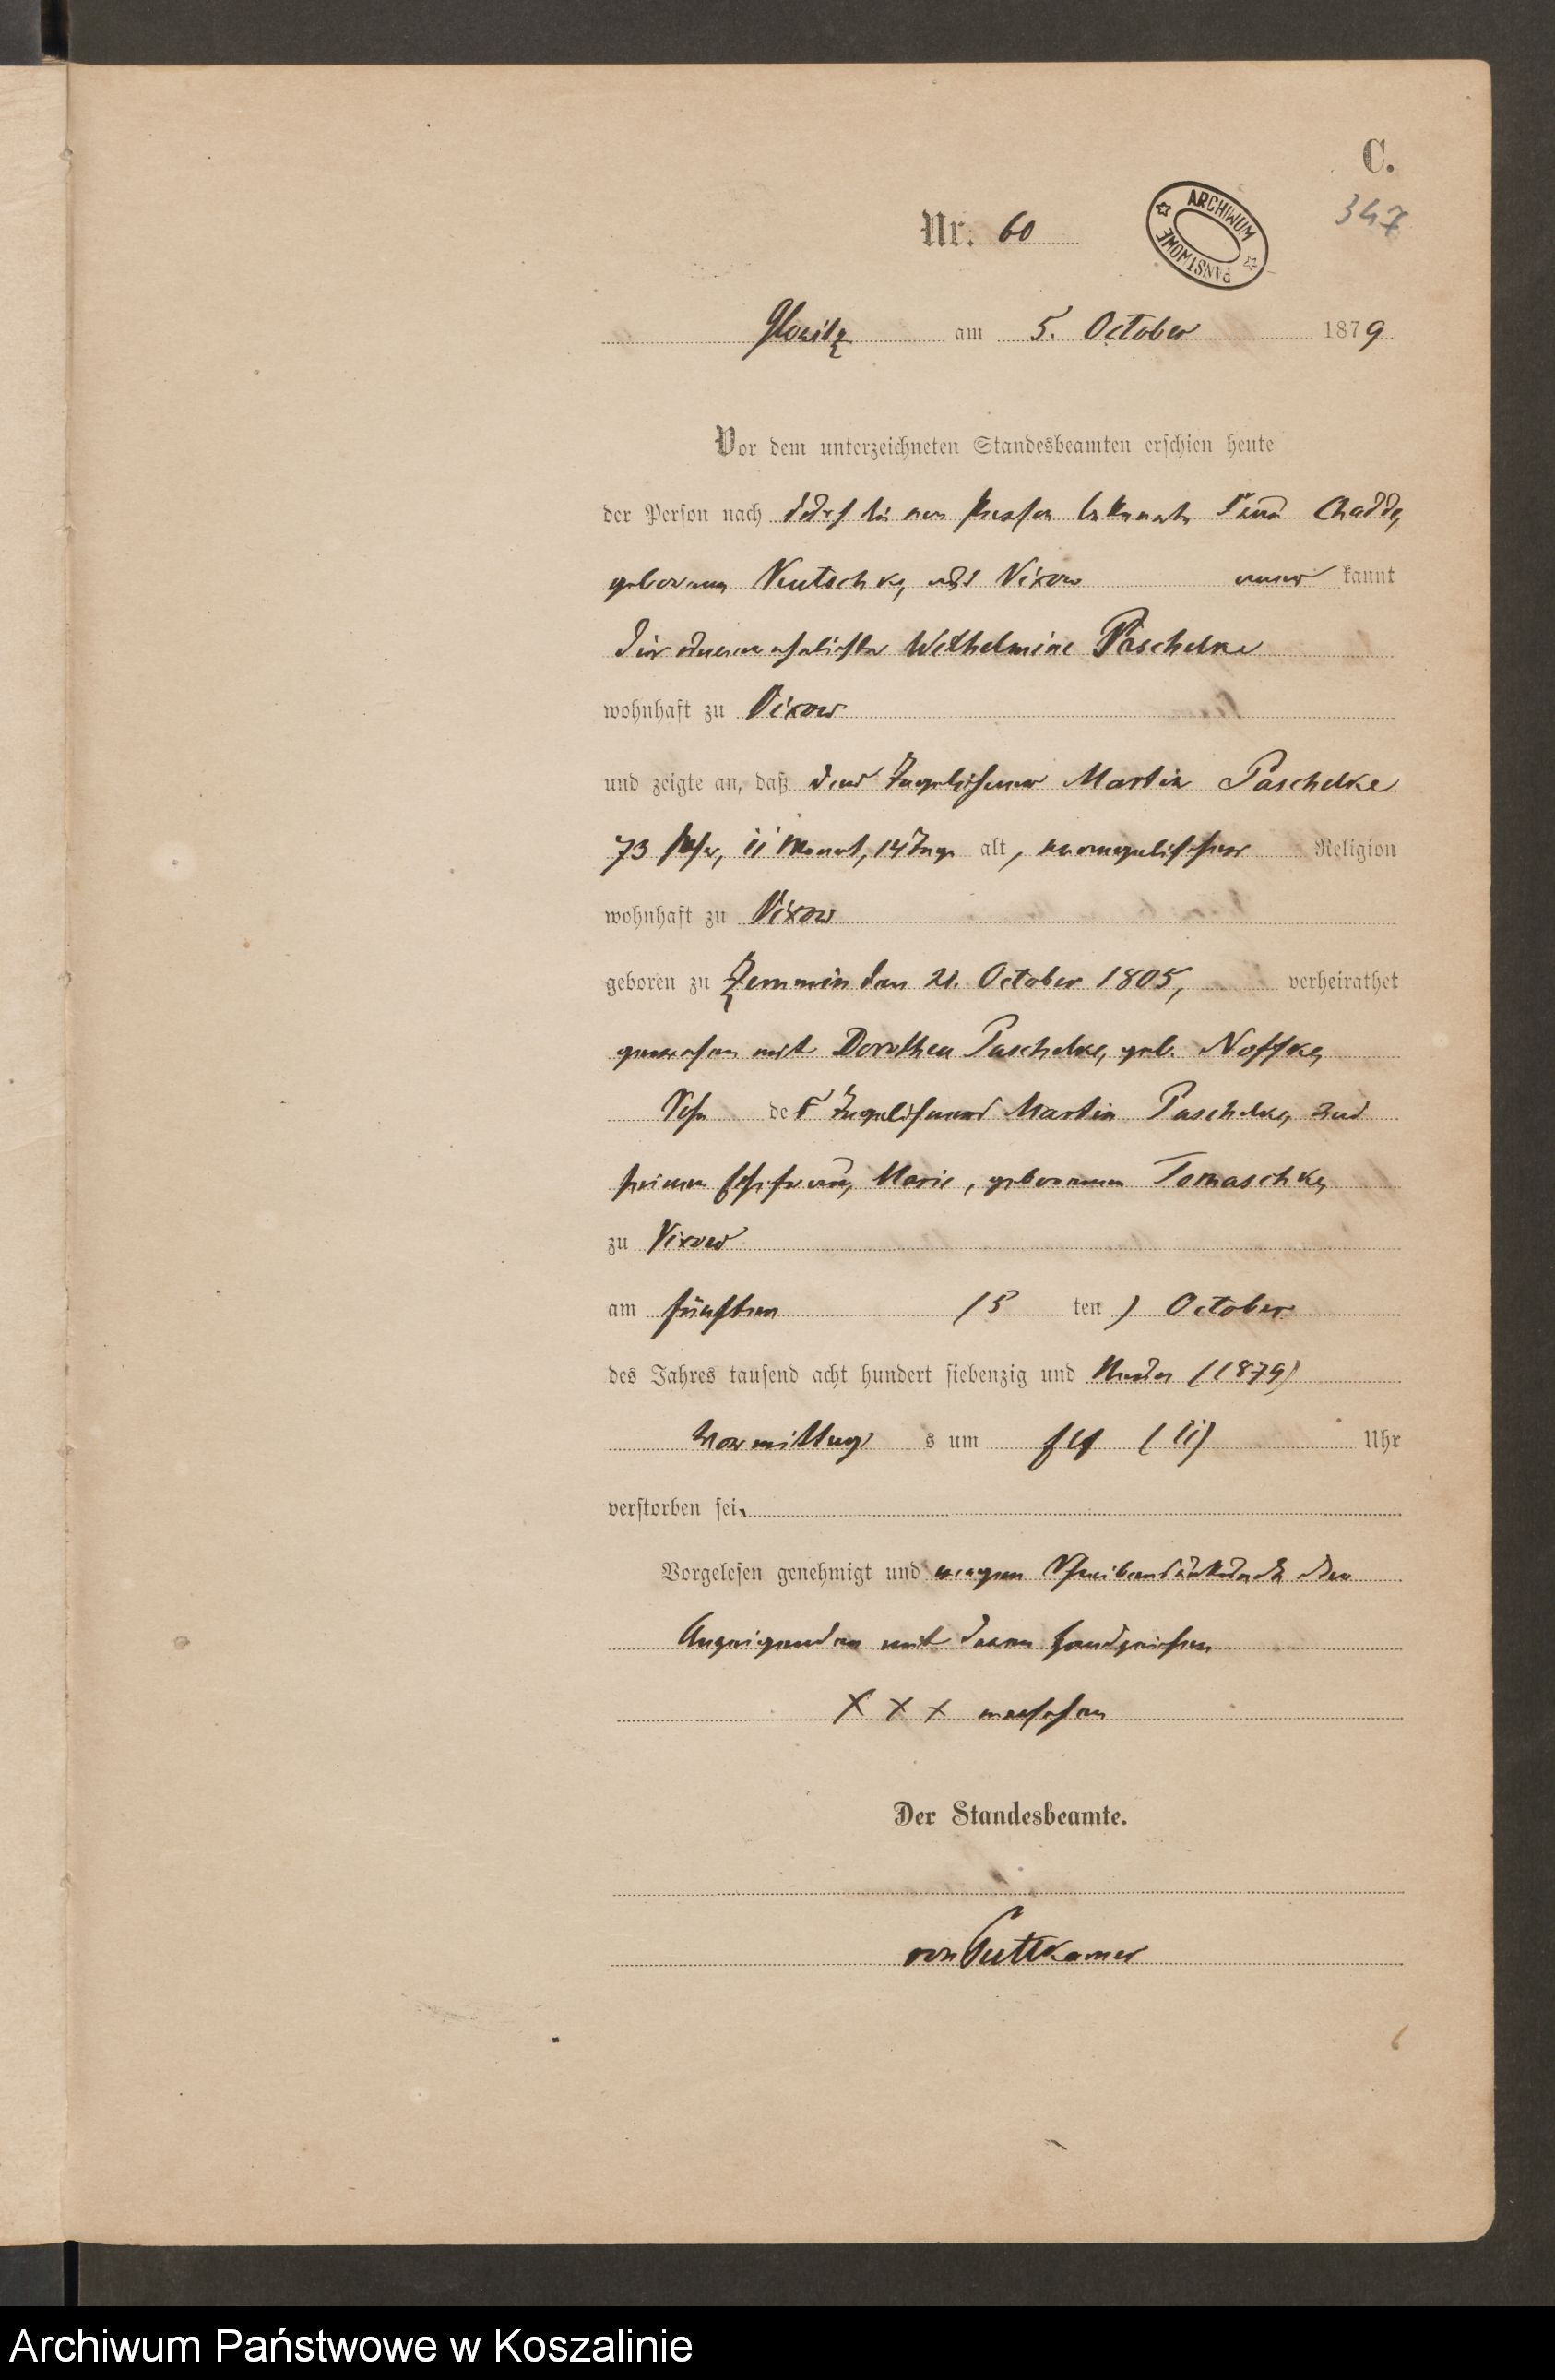 C.
347
Nr. 60
ARCHIWUM PAŃSTWOWE
Glowitz am 5. October 1879
Vor dem unterzeichneten Standesbeamten erschien heute
der Person nach durch die von Person bekannte Frau Chadde,
geborenen Neutschke, aus Vixow kannt
die unverehelichte Wilhelmine Paschelke
wohnhaft zu Vixow
und zeigte an, daß der Tagelöhner Martin Paschelke
73 Jahr, 11 Monat, 14 Tage alt, evangelischer Religion
wohnhaft zu Vixow
geboren zu Zemmin den 21. October 1805, verheirathet
gewesen mit Dorothea Paschelke, geb. Noffke,
Sohn des Tagelöhners Martin Paschelke, und
seiner Ehefrau, Marie, geborenen Tomaschke,
zu Vixow
am fünften (5 ten) October
des Jahres tausend acht hundert siebenzig und Neun (1879)
Vormittags um Elf (11) Uhr
verstorben sei.
Vorgelesen genehmigt und wegen Schreibensunkunde der
Anzeigenden mit deren Handzeichen
X X X versehen
Der Standesbeamte.
von Puttkamer
Archiwum Państwowe w Koszalinie